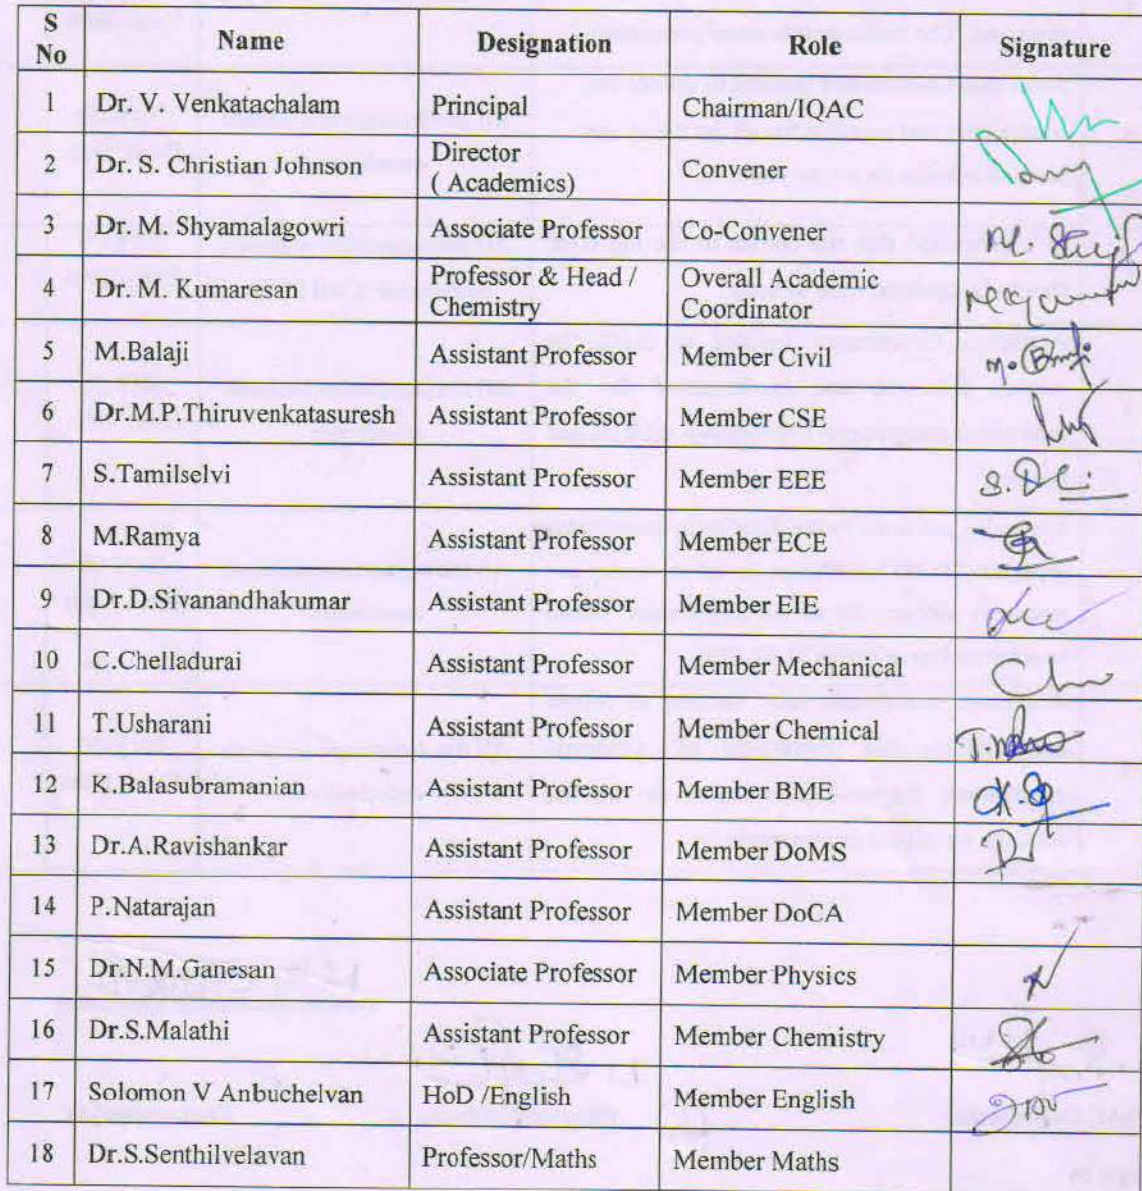 S No Name Designation Role Signature
1 Dr. V. Venkatachalam Principal Chairman/IQAC
2 Dr. S. Christian Johnson Director ( Academics) Convener
3 Dr. M. Shyamalagowri Associate Professor Co-Convener
4 Dr. M. Kumaresan Professor & Head / Chemistry Overall Academic Coordinator
5 M.Balaji Assistant Professor Member Civil
6 Dr.M.P.Thiruvenkatasuresh Assistant Professor Member CSE
7 S.Tamilselvi Assistant Professor Member EEE
8 M.Ramya Assistant Professor Member ECE
9 Dr.D.Sivanandhakumar Assistant Professor Member EIE
10 C.Chelladurai Assistant Professor Member Mechanical
11 T.Usharani Assistant Professor Member Chemical
12 K.Balasubramanian Assistant Professor Member BME
13 Dr.A.Ravishankar Assistant Professor Member DoMS
14 P.Natarajan Assistant Professor Member DoCA
15 Dr.N.M.Ganesan Associate Professor Member Physics
16 Dr.S.Malathi Assistant Professor Member Chemistry
17 Solomon V Anbuchelvan HoD /English Member English
18 Dr.S.Senthilvelavan Professor/Maths Member Maths